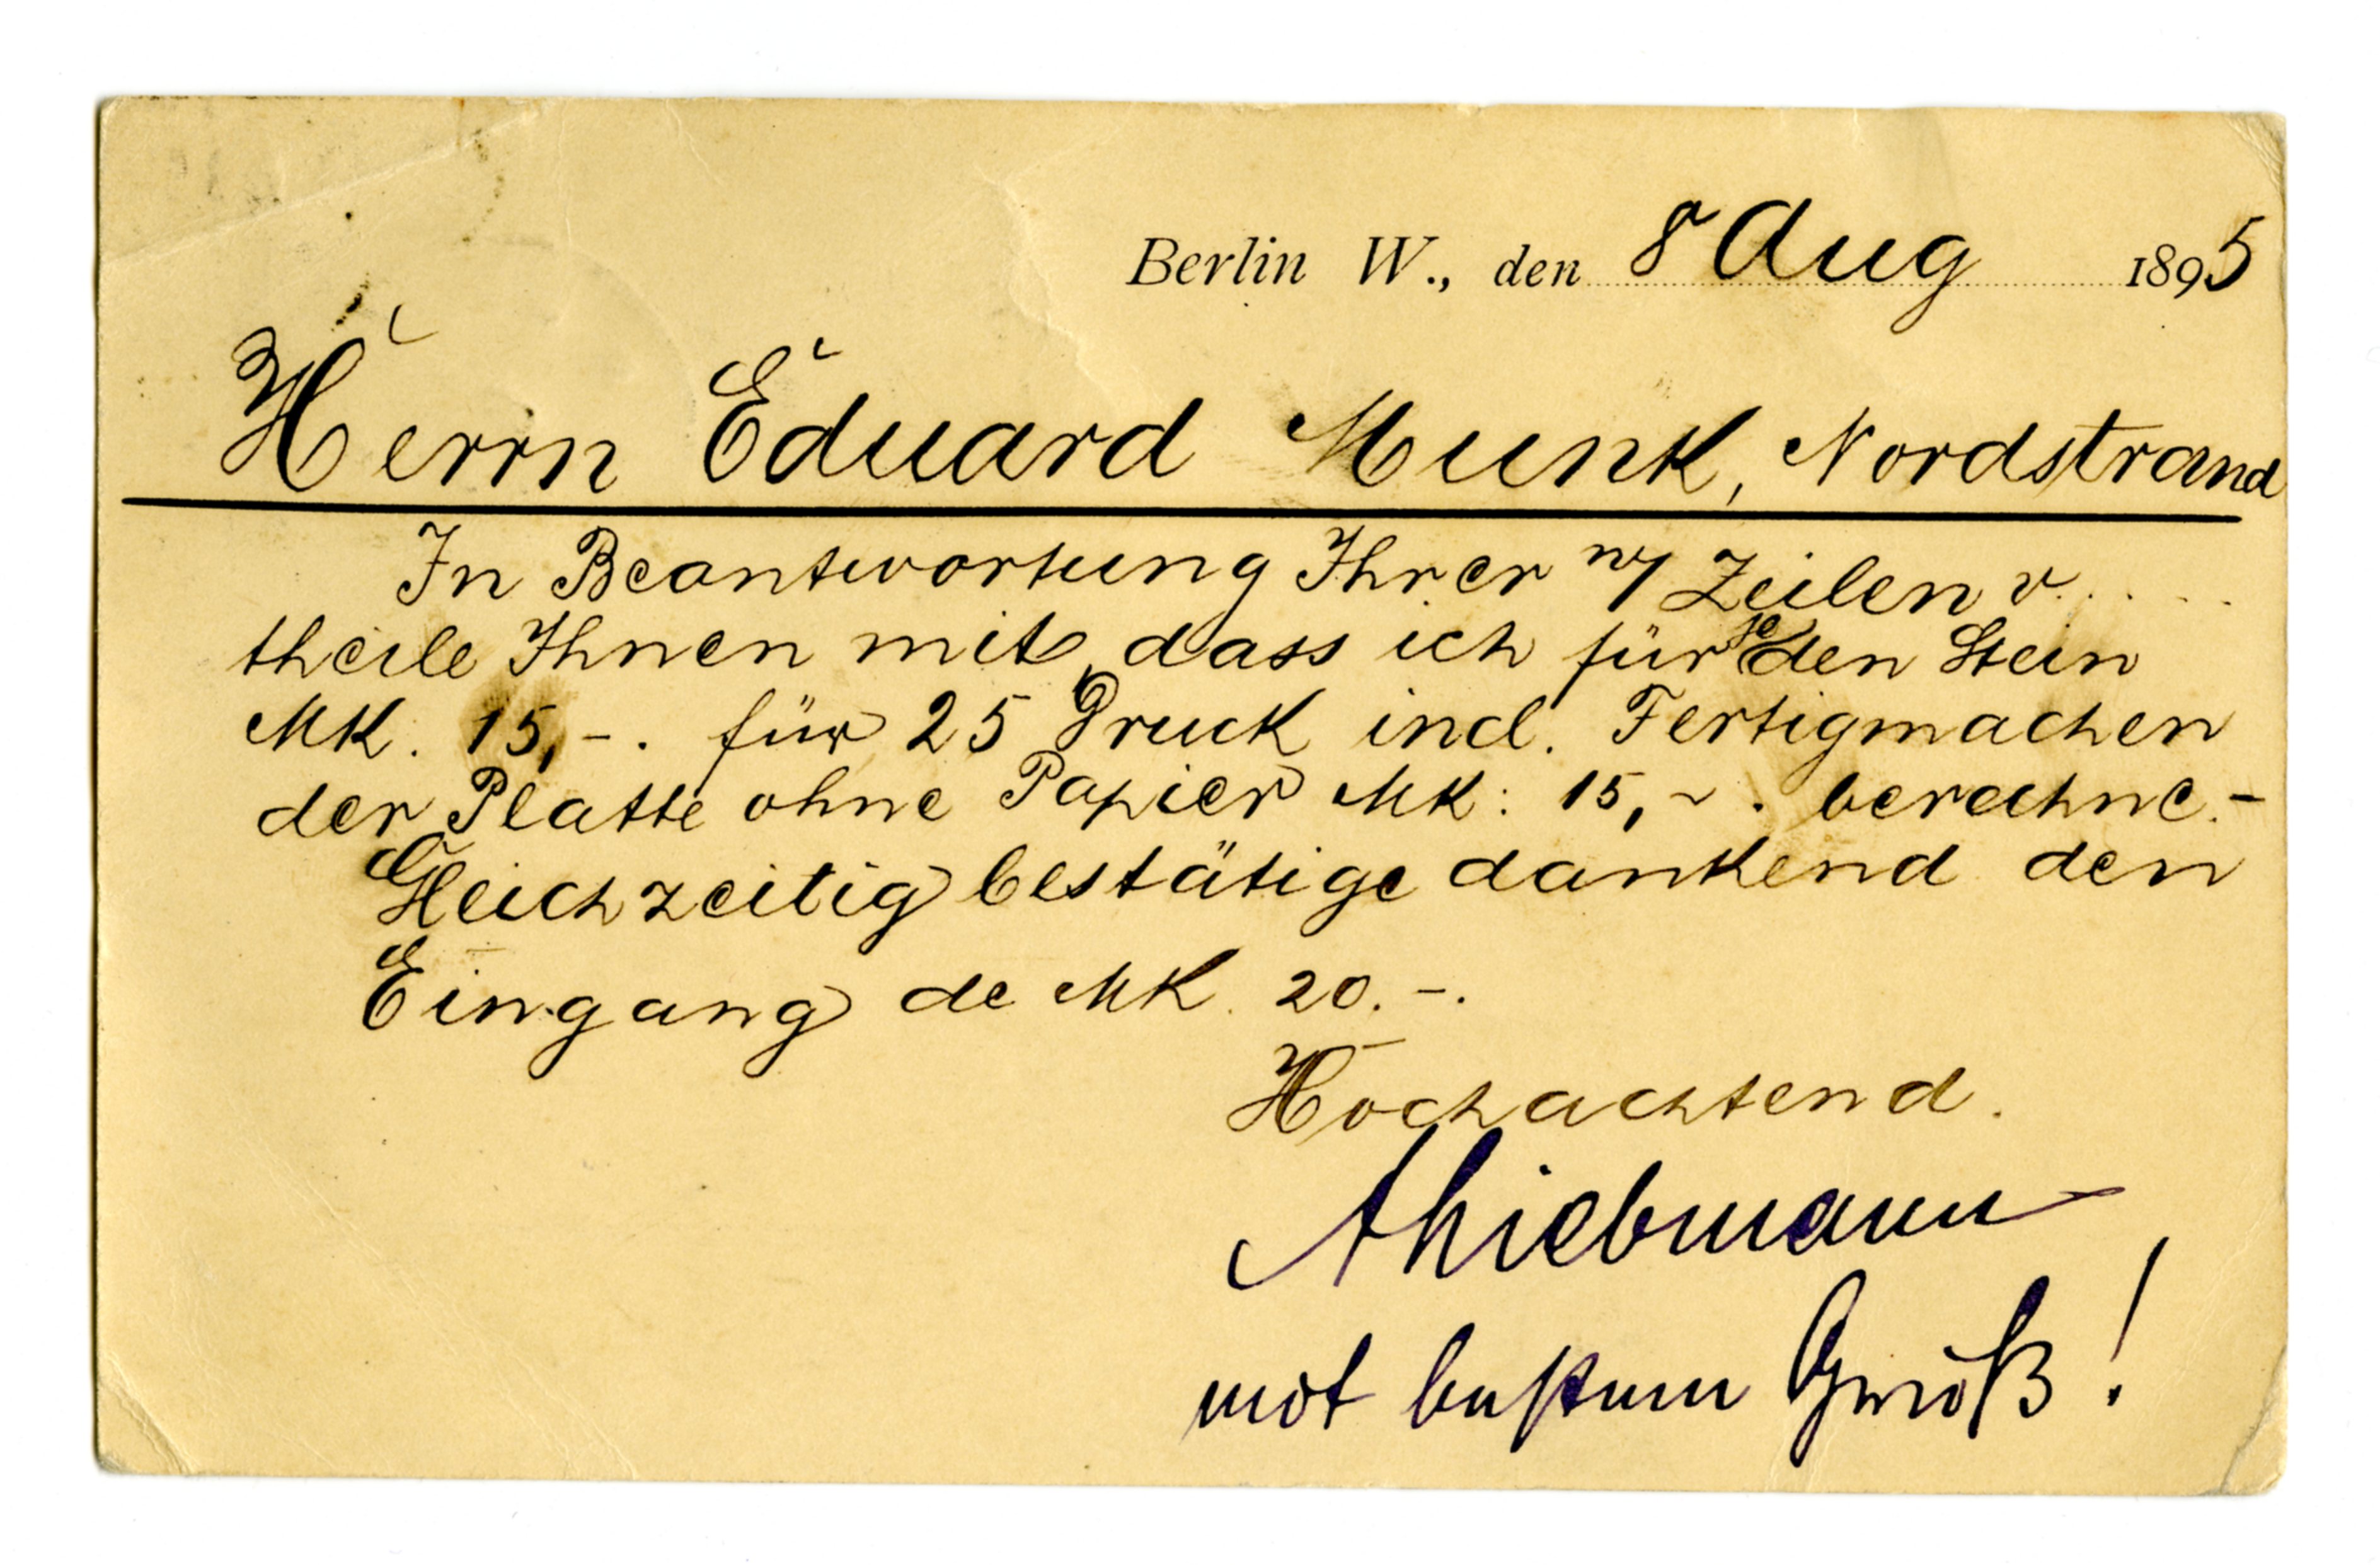 Berlin W., den 8 Aug 1895
Herrn Eduard Munk, Nordstrand
In Beantwortung Ihrer Zeilen v. . . . .
theile Ihnen mit, dass ich für jeden Stein
MK. 15,-. für 25 Druck incl. Fertigmachen
der Platte ohne Papier MK: 15,-. berechne.-
Gleichzeitig bestätige dankend den
Eingang de MK. 20.-.
Hochachtend.
AngLiebmann
mit bestem Gruß!